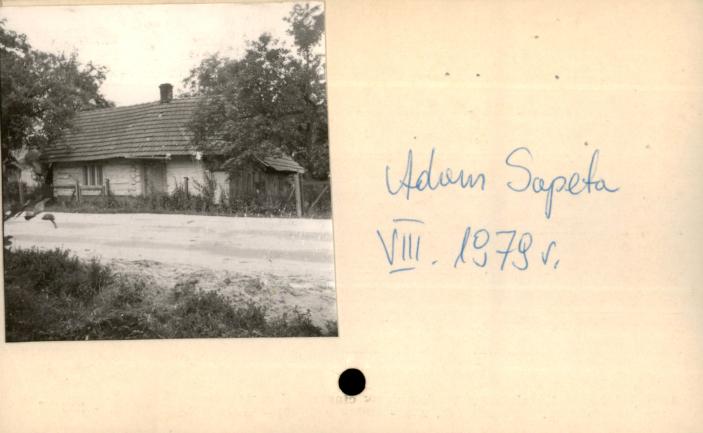 Adam Sapeta
VIII. 1979 r.